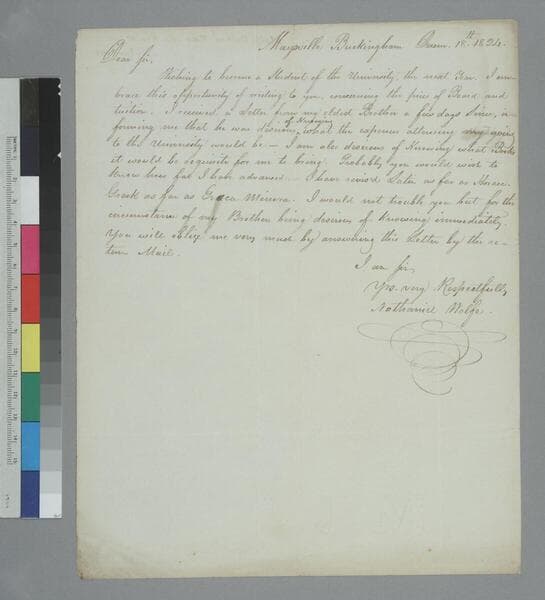 Maysville Buckingham 18th 1824.
Dear Sir,
Wishing to become a Student of the University the next Year. I em-
brace this opportunity of writing to you, concerning the price of Board and
tuition. I received a Letter from my eldest Brother a few days since, in-
forming me that he was desirous of Knowing what the expences attending my going
to the University would be — I am also desirous of Knowing what Books
it would be requisite for me to bring. Probably you would wish to
know how far I have advanced — I have review'd Latin as far as Horace.
Greek as far as Graeca Minora. I would not trouble you but for the
circumstance of my Brother being desirous of Knowing immediately.
You will oblige me very much by answering this Letter by the re-
turn Mail.
I am Sir,
Yrs. very Respectfully
Nathaniel Wolfe.